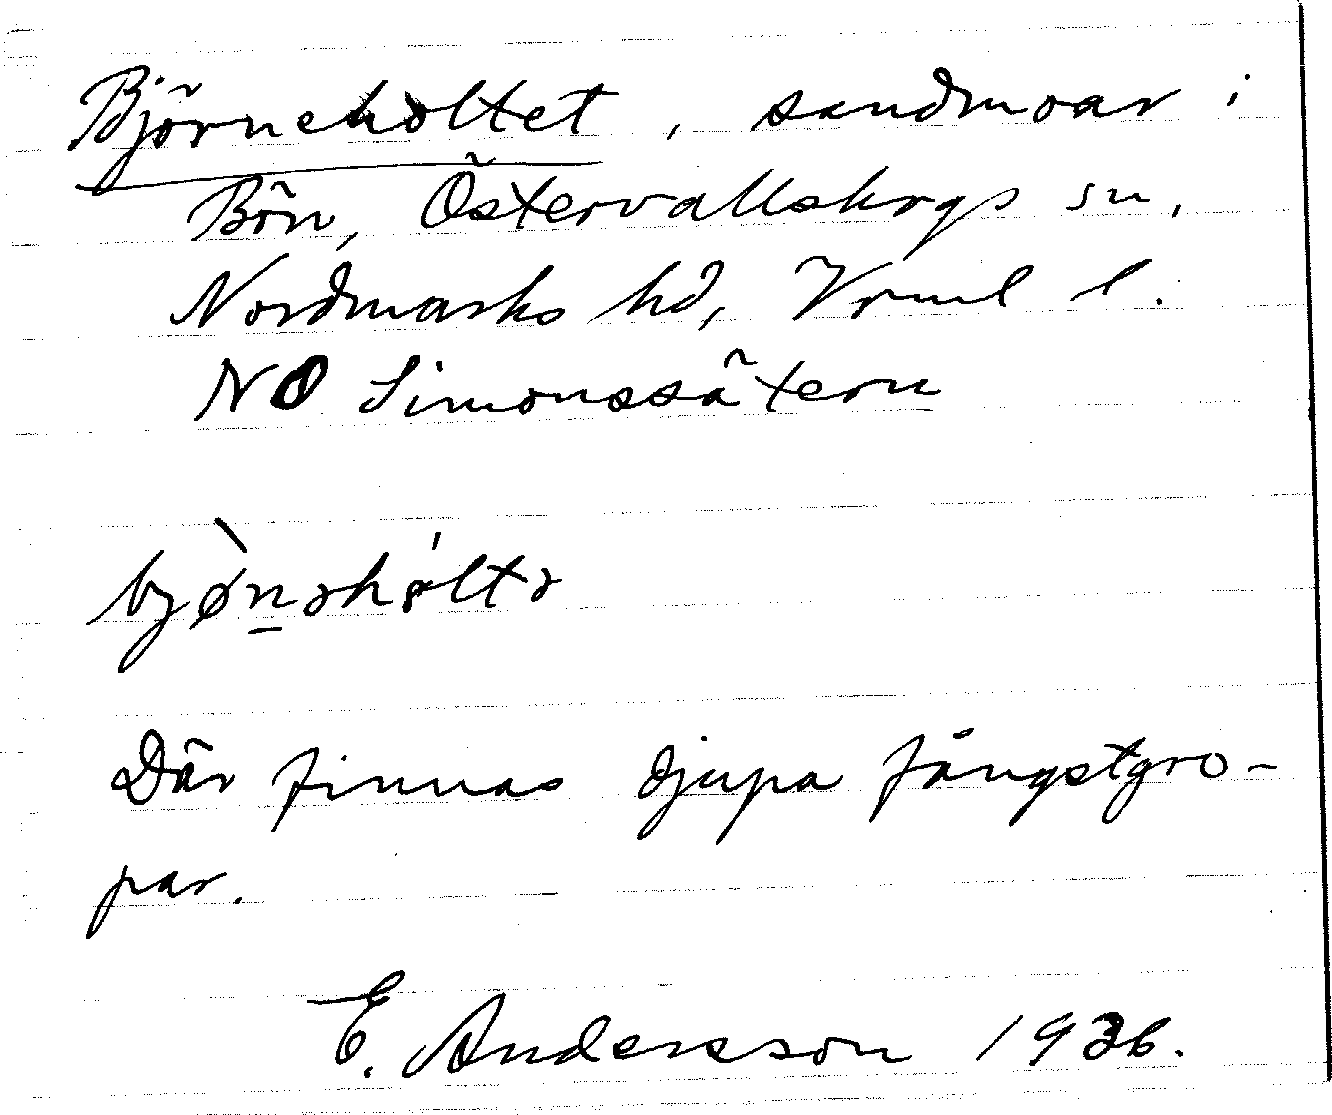 Björneholtet, sandmoar i
Bön, Östervallskogs sn,
Nordmarks hd, Vrml l.
NO Simonssätern
bjø̀n̲əhớltə
Där finnas djupa fångstgro-
par.
E. Andersson 1936.